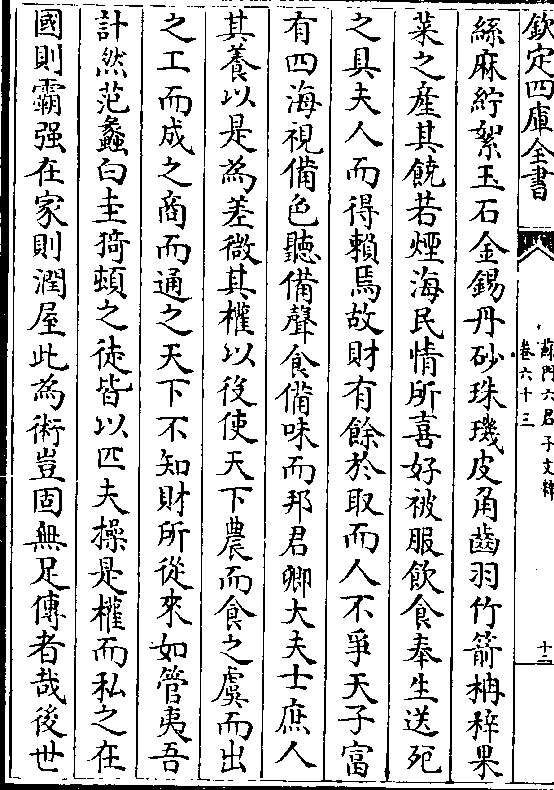 欽定四庫全書
蘇門六君子文粹
卷六十三
十二
絲麻紵絮玉石金錫丹砂珠璣皮角齒羽竹箭枏梓果
菜之産其饒若煙海民情所喜好被服飲食奉生送死
之具夫人而得賴焉故財有餘於取而人不爭天子富
有四海視備色聽備聲食備味而邦君卿大夫士庶人
其養以是為差微其權以役使天下農而食之虞而出
之工而成之商而通之天下不知財所從來如管夷吾
計然范蠡白圭猗頓之徒皆以匹夫操是權而私之在
國則霸强在家則潤屋此為術豈固無足傳者哉後世